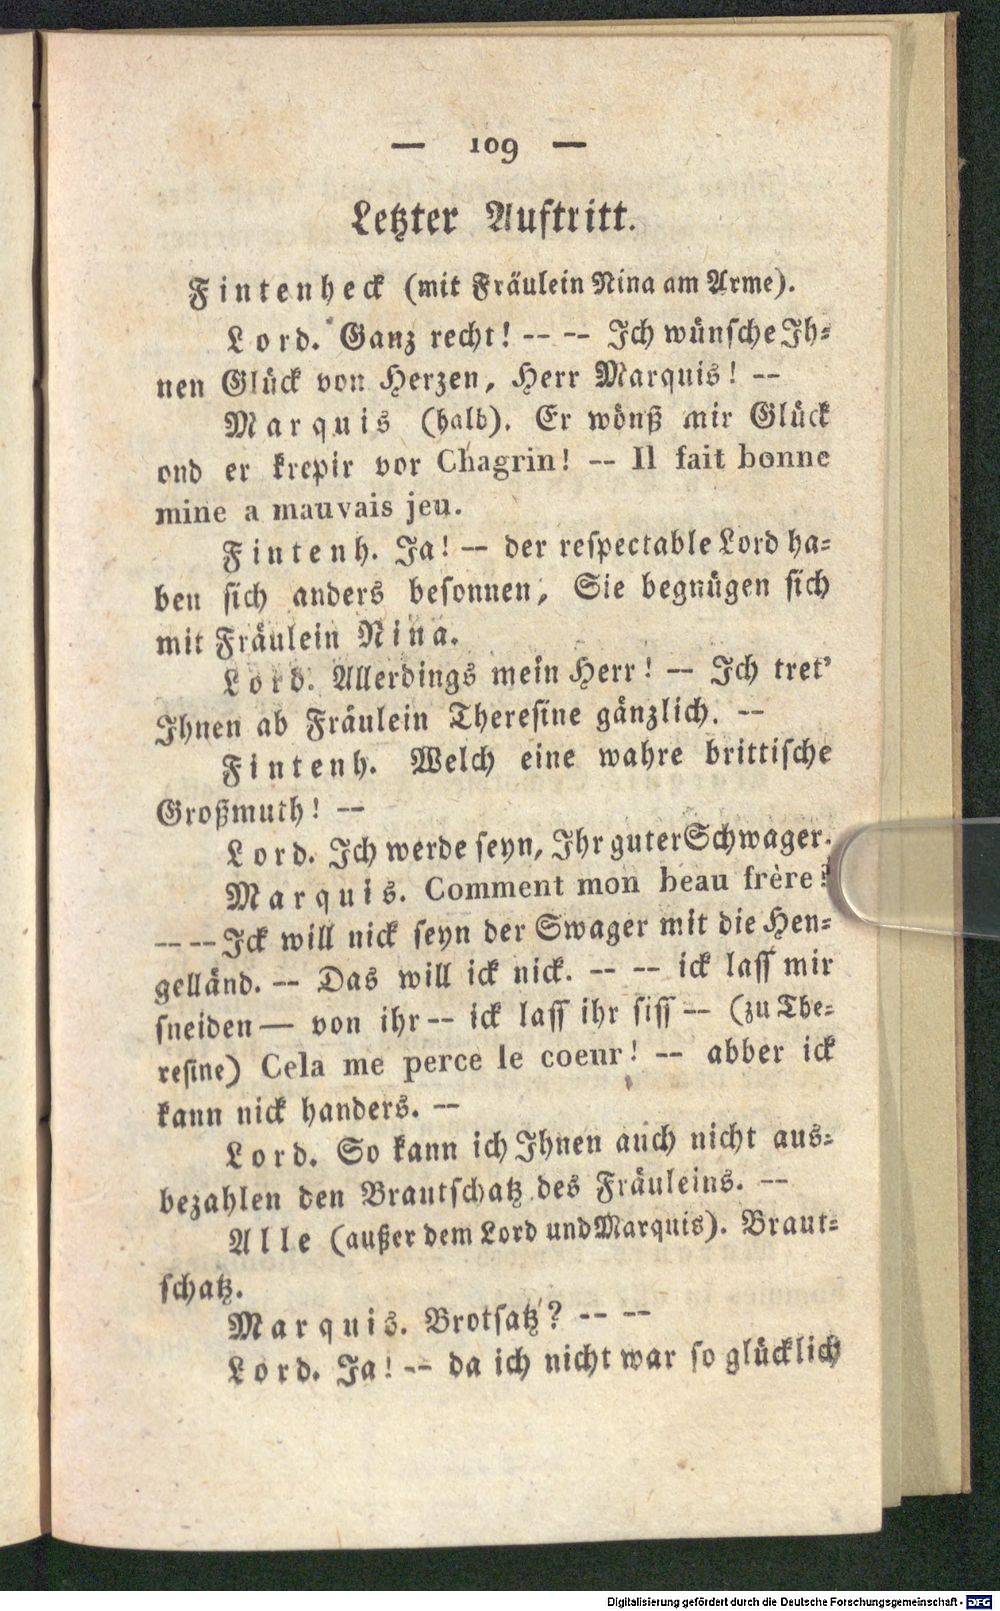 — 109 —
Letzter Auftritt.
Fintenheck (mit Fräulein Nina am Arme).
Lord. Ganz recht! -- -- Ich wünsche Ih-
nen Glück von Herzen, Herr Marquis! --
Marquis (halb). Er wönß mir Glück
ond er krepir vor Chagrin! -- Il fait bonne
mine a mauvais jeu.
Fintenh. Ja! -- der respectable Lord ha-
ben sich anders besonnen, Sie begnügen sich
mit Fräulein Nina.
Lord. Allerdings mein Herr! -- Ich tret'
Ihnen ab Fräulein Theresine gänzlich. --
Fintenh. Welch eine wahre brittische
Großmuth! --
Lord. Ich werde seyn, Ihr guter Schwager.
Marquis. Comment mon beau frère?
-- -- Ick will nick seyn der Swager mit die Hen-
gelländ. -- Das will ick nick. -- -- ick lass mir
sneiden — von ihr -- ick lass ihr siss -- (zu The-
resine) Cela me perce le coeur! -- abber ick
kann nick handers. --
Lord. So kann ich Ihnen auch nicht aus-
bezahlen den Brautschatz des Fräuleins. --
Alle (außer dem Lord und Marquis). Braut-
schatz.
Marquis. Brotsatz? -- --
Lord. Ja! -- da ich nicht war so glücklich
Digitalisierung gefördert durch die Deutsche Forschungsgemeinschaft - DFG